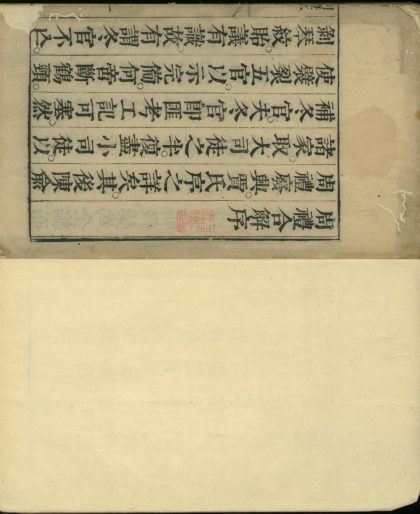 周禮合解序
周禮廢興賈氏序之詳矣其後陳俞
諸家取大司徒之半復盡小司徒以
補冬官夫冬官卽匪考工記可塞然
使裂五官以示完備何啻斷鶴頸
琹紋貽譏有識故有謂冬官不亾